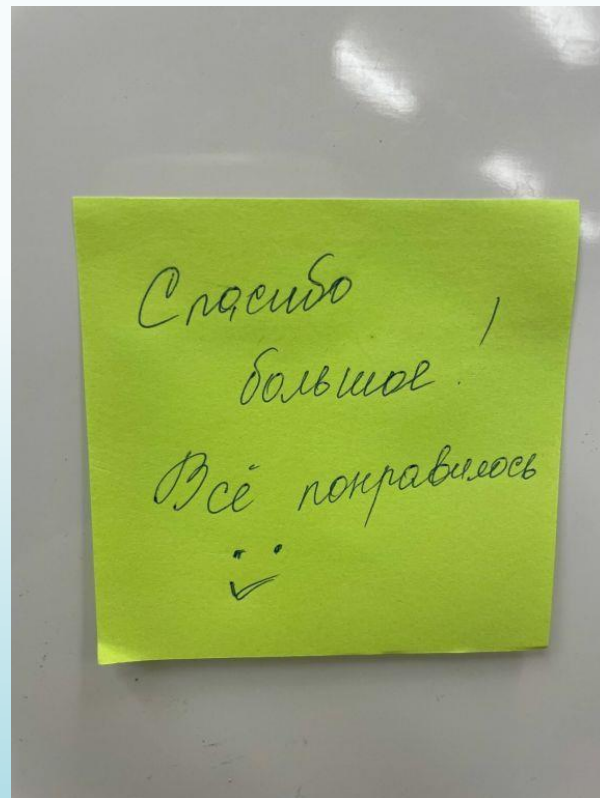 Спасибо
большое!
Всё понравилось